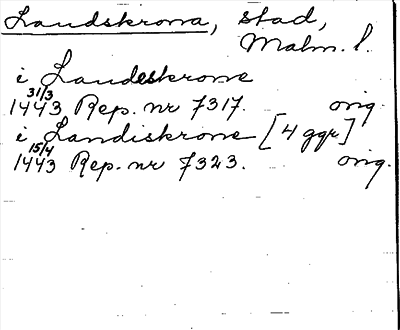 Landskrona, stad,
Malm. l.
i Landeskrone
31/3
1443 Rep. nr 7317. orig.
i Landiskrone [4 ggr]
15/4
1443 Rep. nr 7323. orig.